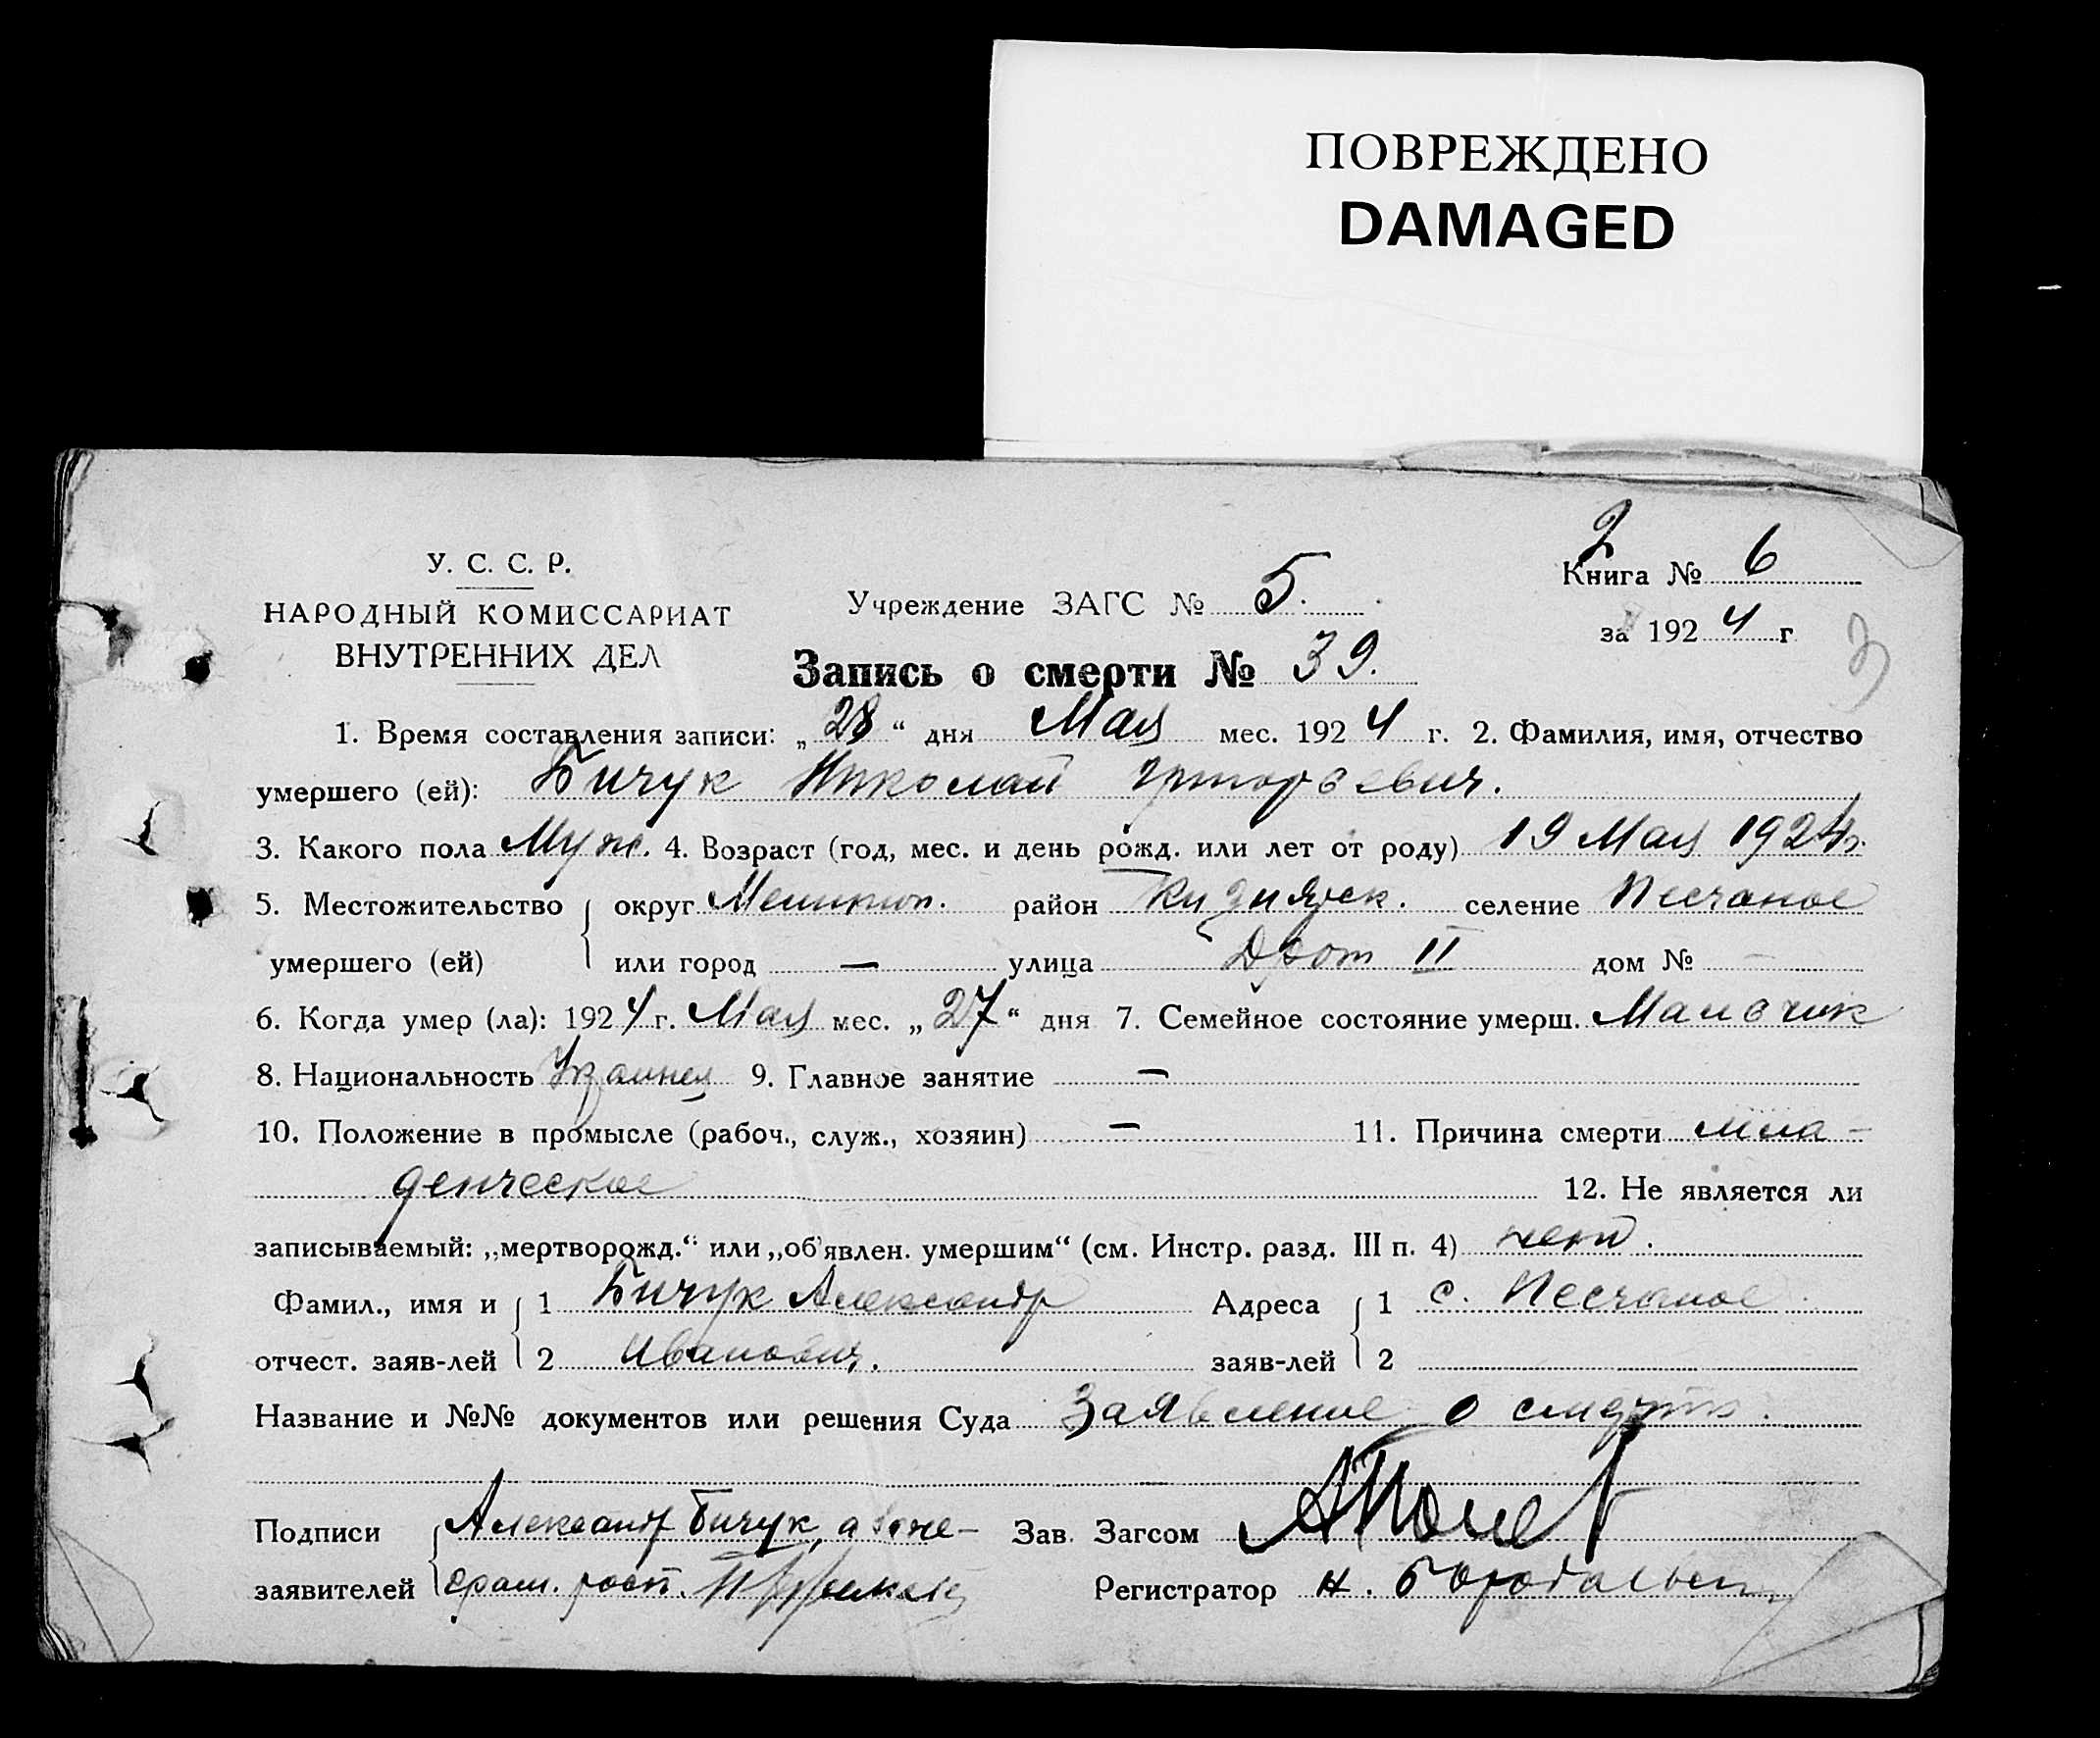 ПОВРЕЖДЕНО
DAMAGED
2
У. С. С. Р.
Учреждение ЗАГС № 5.
Книга № 6
НАРОДНЫЙ КОМИССАРИАТ
ВНУТРЕННИХ ДЕЛ
за 1924 г.
3
Запись о смерти № 39.
1. Время составления записи: „28“ дня Мая мес. 1924 г. 2. Фамилия, имя, отчество
умершего (ей): Бичук Николай Григорьевич.
3. Какого пола Муж. 4. Возраст (год, мес. и день рожд. или лет от роду) 19 Мая 1924 г.
5. Местожительство округ Мелитоп. район Кизиярск. селение Песчаное
умершего (ей) или город — улица II дом № —
6. Когда умер (ла): 1924 г. Мая мес. „27“ дня 7. Семейное состояние умерш. Мальчик
8. Национальность Украинец 9. Главное занятие —
10. Положение в промысле (рабоч., служ., хозяин) — 11. Причина смерти мла-
денческое 12. Не является ли
записываемый: „мертворожд.“ или „об'явлен. умершим“ (см. Инстр. разд. III п. 4) нет.
Фамил., имя и 1 Бичук Александр Адреса 1 с. Песчаное
отчест. заяв-лей 2 Иванович. заяв-лей 2
Название и №№ документов или решения Суда Заявление о смерти.
Подписи Александр Бичук, а за не- Зав. Загсом
заявителей грам. росп. Регистратор Н.